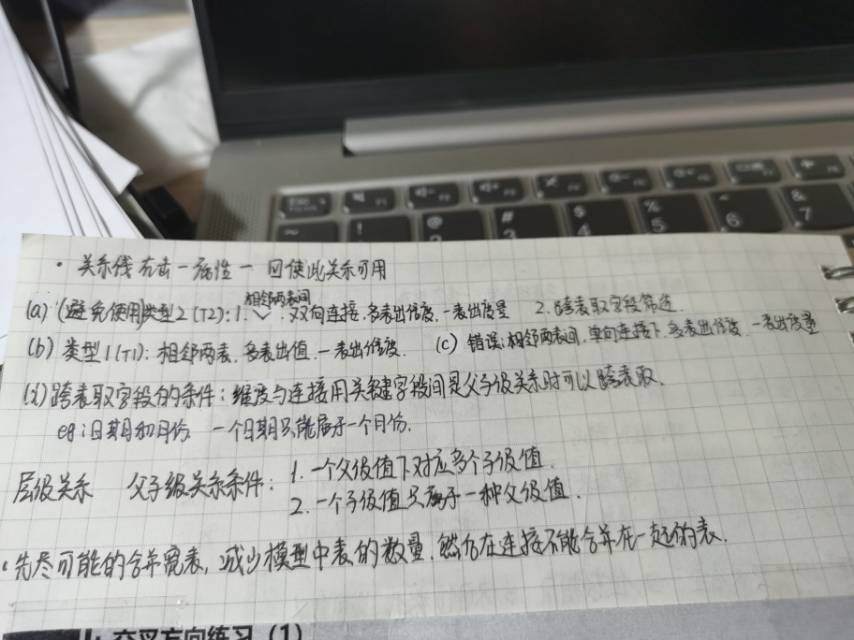 · 关系线右击一属性一回使此关系可用
相邻两表间
(a) (避免使用)类型2(T2): 1. 双向连接, 多表出维度, 一表出度量 2. 跨表取字段筛选
(b) 类型1(T1): 相邻两表, 多表出值, 一表出维度. (c) 错误: 相邻两表间, 单向连接下, 多表出维度, 一表出度量
(d) 跨表取字段的条件: 维度与连接用关键字段间是父子级关系时可以跨表取.
eg: 日期和月份 一个日期只能属于一个月份.
层级关系 父子级关系条件: 1. 一个父级值下对应多个子级值.
2. 一个子级值只属于一种父级值.
· 先尽可能的合并宽表, 减少模型中表的数量, 然后在连接不能合并在一起的表.
交叉方向练习 (1)